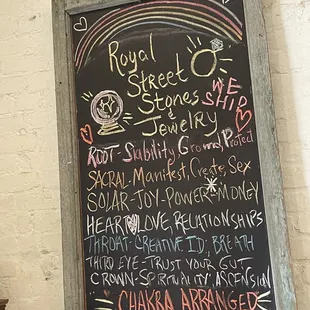 Royal
Street
Stones
&
Jewelry
WE
SHIP
ROOT - Stability, Ground, Protect
SACRAL - Manifest, Create, Sex
SOLAR - JOY - POWER - MONEY
HEART LOVE, RELATIONSHIPS
THROAT - CREATIVE ID, BREATH
THIRD EYE - TRUST YOUR GUT
CROWN - SPIRITUALITY, ASCENSION
CHAKRA ARRANGED